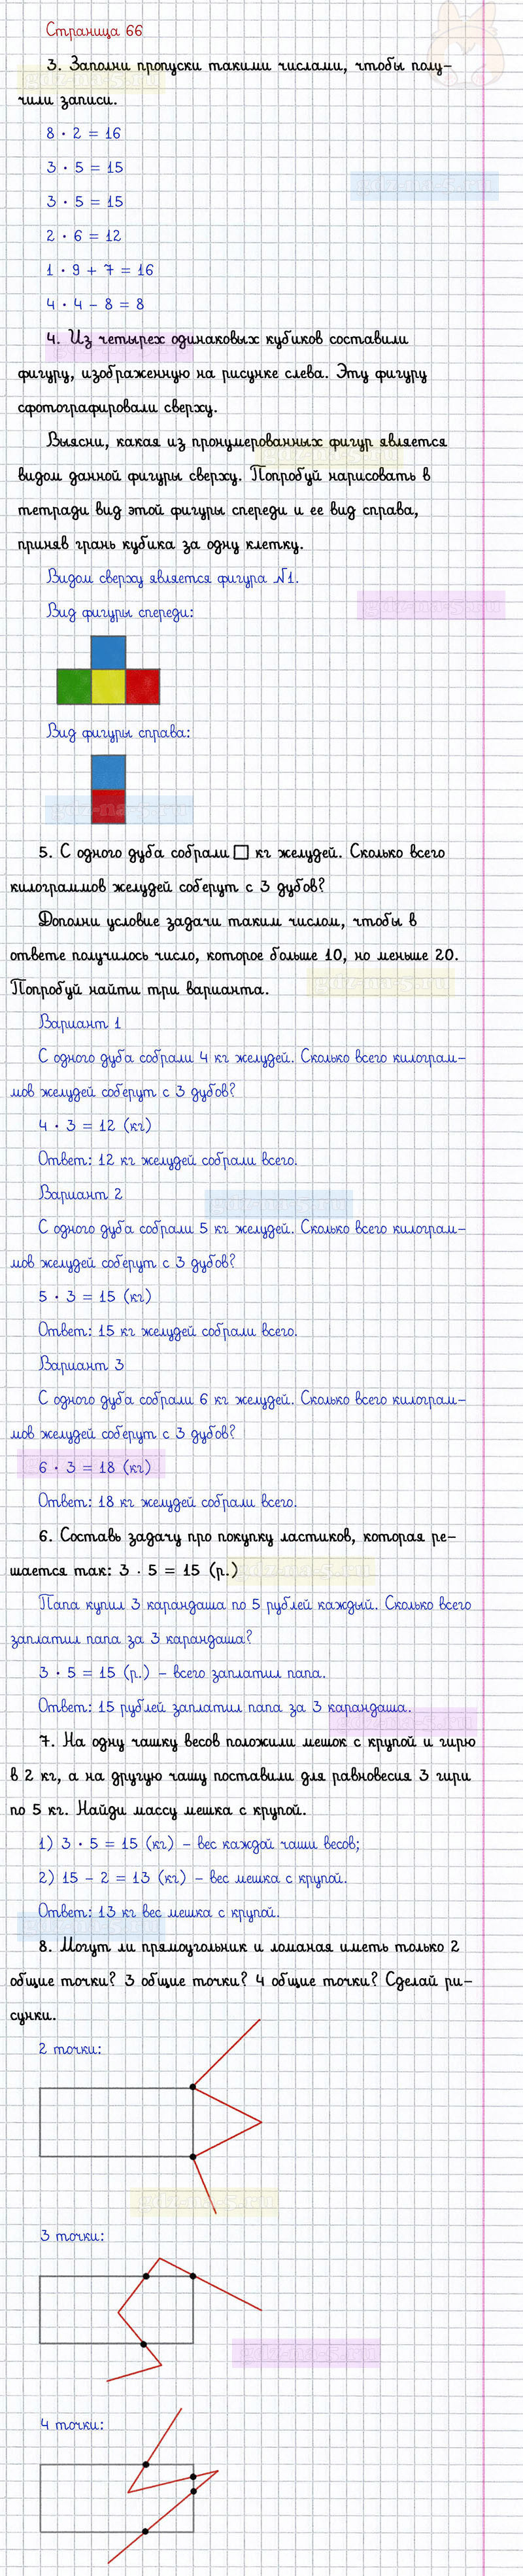 Страница 66
3. Заполни пропуски такими числами, чтобы полу-
чили записи.
8 · 2 = 16
3 · 5 = 15
3 · 5 = 15
2 · 6 = 12
1 · 9 + 7 = 16
4 · 4 - 8 = 8
4. Из четырех одинаковых кубиков составили
фигуру, изображенную на рисунке слева. Эту фигуру
сфотографировали сверху.
Выясни, какая из пронумерованных фигур является
видом данной фигуры сверху. Попробуй нарисовать в
тетради вид этой фигуры спереди и ее вид справа,
приняв грань кубика за одну клетку.
Видом сверху является фигура №1.
Вид фигуры спереди:
Вид фигуры справа:
5. С одного дуба собрали □ кг желудей. Сколько всего
килограммов желудей соберут с 3 дубов?
Дополни условие задачи таким числом, чтобы в
ответе получилось число, которое больше 10, но меньше 20.
Попробуй найти три варианта.
Вариант 1
С одного дуба собрали 4 кг желудей. Сколько всего килограм-
мов желудей соберут с 3 дубов?
4 · 3 = 12 (кг)
Ответ: 12 кг желудей собрали всего.
Вариант 2
С одного дуба собрали 5 кг желудей. Сколько всего килограм-
мов желудей соберут с 3 дубов?
5 · 3 = 15 (кг)
Ответ: 15 кг желудей собрали всего.
Вариант 3
С одного дуба собрали 6 кг желудей. Сколько всего килограм-
мов желудей соберут с 3 дубов?
6 · 3 = 18 (кг)
Ответ: 18 кг желудей собрали всего.
6. Составь задачу про покупку ластиков, которая ре-
шается так: 3 · 5 = 15 (р.)
Папа купил 3 карандаша по 5 рублей каждый. Сколько всего
заплатил папа за 3 карандаша?
3 · 5 = 15 (р.) - всего заплатил папа.
Ответ: 15 рублей заплатил папа за 3 карандаша.
7. На одну чашку весов положили мешок с крупой и гирю
в 2 кг, а на другую чашу поставили для равновесия 3 гири
по 5 кг. Найди массу мешка с крупой.
1) 3 · 5 = 15 (кг) - вес каждой чаши весов;
2) 15 - 2 = 13 (кг) - вес мешка с крупой.
Ответ: 13 кг вес мешка с крупой.
8. Могут ли прямоугольник и ломаная иметь только 2
общие точки? 3 общие точки? 4 общие точки? Сделай ри-
сунки.
2 точки:
3 точки:
4 точки: